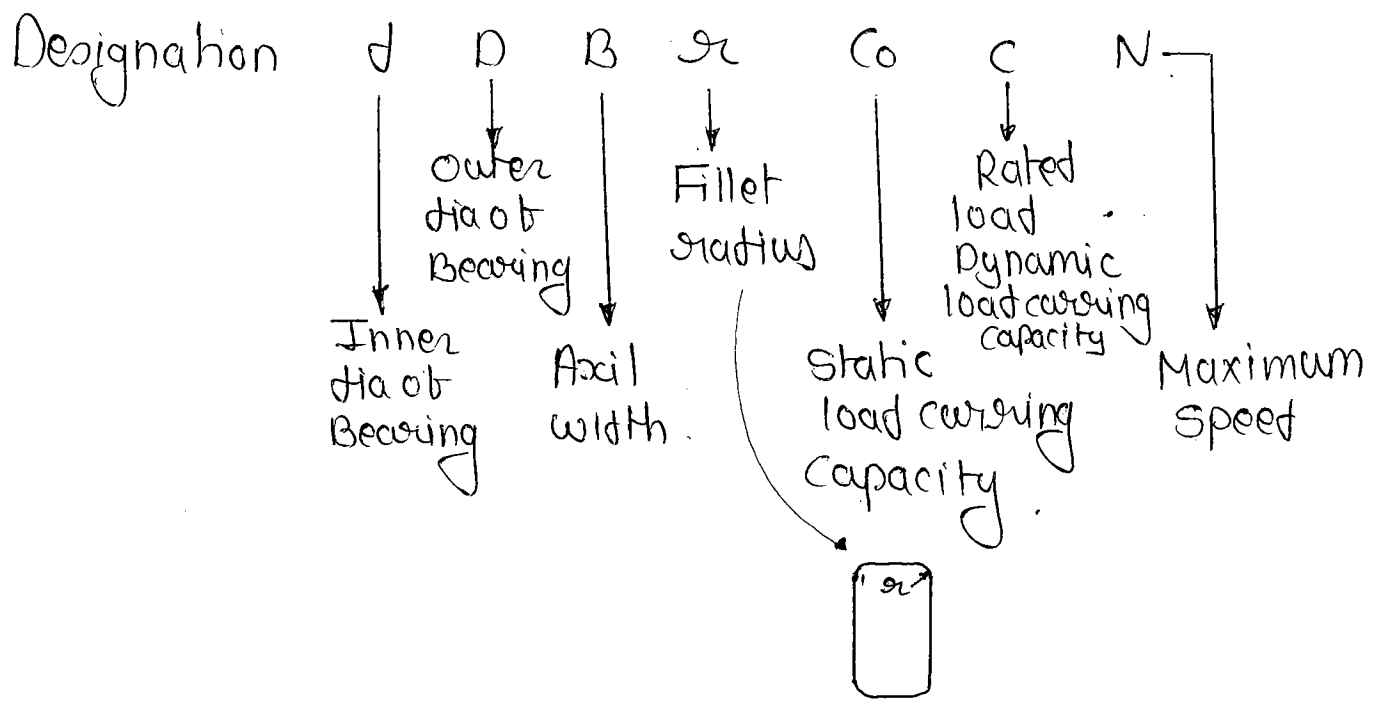 Designation d D B r Co C N
Outer
dia of
Bearing
Fillet
radius
Rated
load
Dynamic
load carring
capacity
Inner
dia of
Bearing
Axil
width.
Static
load carring
capacity.
Maximum
speed
r